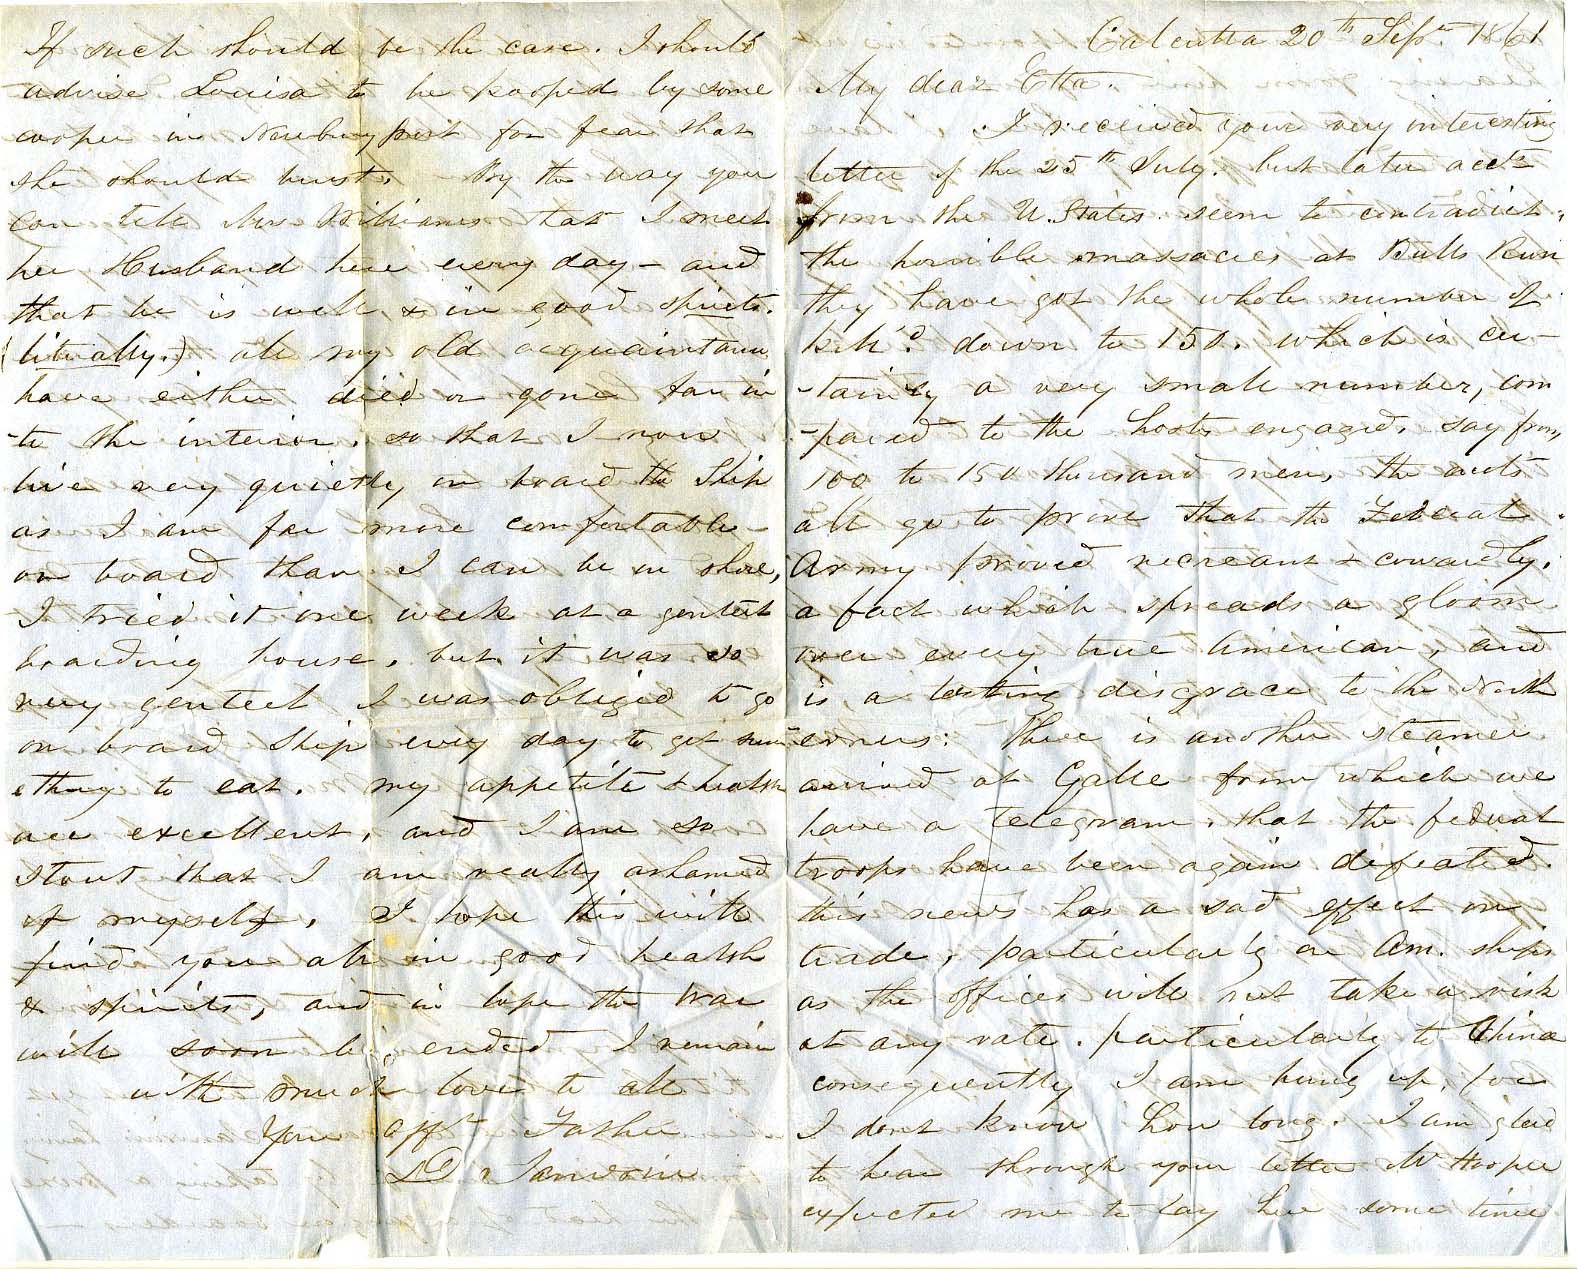 Calcutta 20th Sept. 1861
My dear Etta.
I received your very interesting
letter of the 25th July. but later accts
from the U. States. seem to contradict.
the horrible massacres at Bulls Run
they have got the whole number of
kild down to 150. which is cer-
-tainly a very small number, com
-pared to the hosts engaged, say from
100 to 150 thousand men, the accts
all go to prove that the Federal
Army proved recreant & cowardly.
a fact which spreads a gloom
over every true American, and
is a lasting disgrace to the North
erners: There is another steamer
arrived at Galle from which we
have a telegram. that the federal
troops have been again defeated.
this news has a sad effect on
trade, particularly on Am. ships
as the offices will not take a risk
at any rate. particularly to China
consequently I am hung up, for
I dont know how long. I am glad
to hear through your letter Mr Hooper
expected me to lay here some time
If such should be the case. I should
advise Louisa to be hooped by some
cooper in Newburyport for fear that
she should burst. By the way you
can tell Mrs Williams that I meet
her Husband here every day - and
that he is well & in good spirits.
(literally.) all my old acquaintance
have either died or gone far in
-to the interior. so that I now
live very quietly on board the Ship
as I am far more comfortable
on board than I can be on shore,
I tried it one week at a genteel
boarding house, but it was so
very genteel I was obliged to go
on board Ship every day to get som-
ething to eat. my appetite & health
are excellent, and I am so
stout that I am really ashamed
of myself. I hope this will
find you all in good health
& spirits, and in hope the War
will soon be ended I remain
with much love to all
Your afft Father